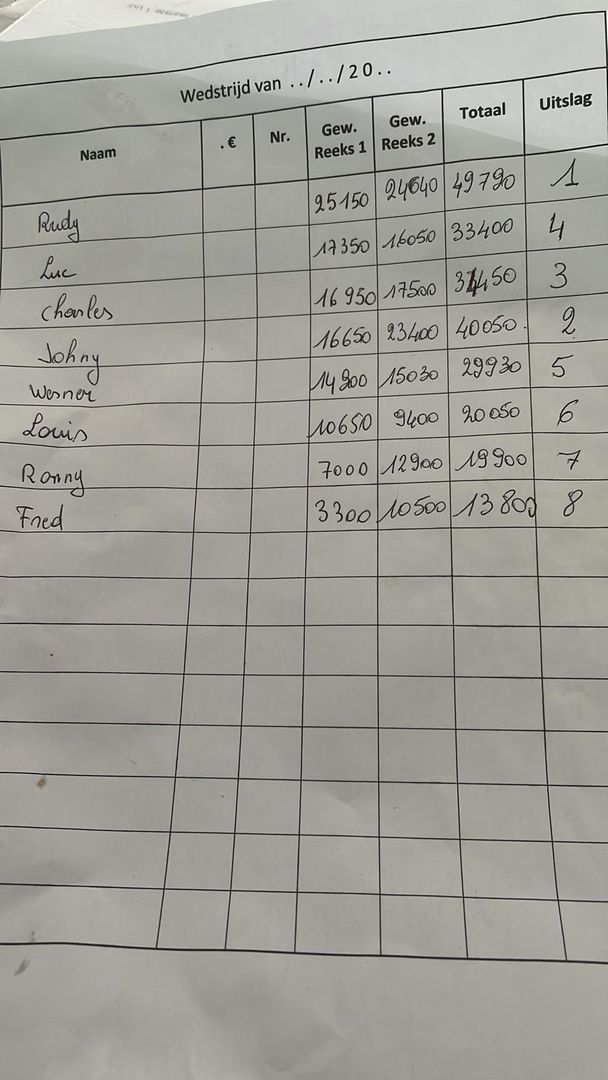 Wedstrijd van ../../20..
Naam .€ Nr. Gew. Reeks 1 Gew. Reeks 2 Totaal Uitslag
Rudy 25150 24640 49790 1
Luc 17350 16050 33400 4
Charles 16950 17500 34450 3
Johny 16650 23400 40050. 2
Werner 14900 15030 29930 5
Louis 10650 9400 20050 6
Ronny 7000 12900 19900 7
Fred 3300 10500 13800 8